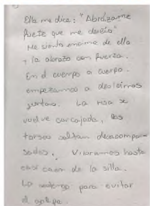 Ella me dice: "Abrázame
fuerte que me
Me
y la abrazo con fuerza.
En el cuerpo a cuerpo.
empezamos a
juntas. La risa se
vuelve carcajada, los
torsos saltan descompa
sados. Vibramos hasta
casi caer de la silla.
La sostengo para evitar
el golpe.